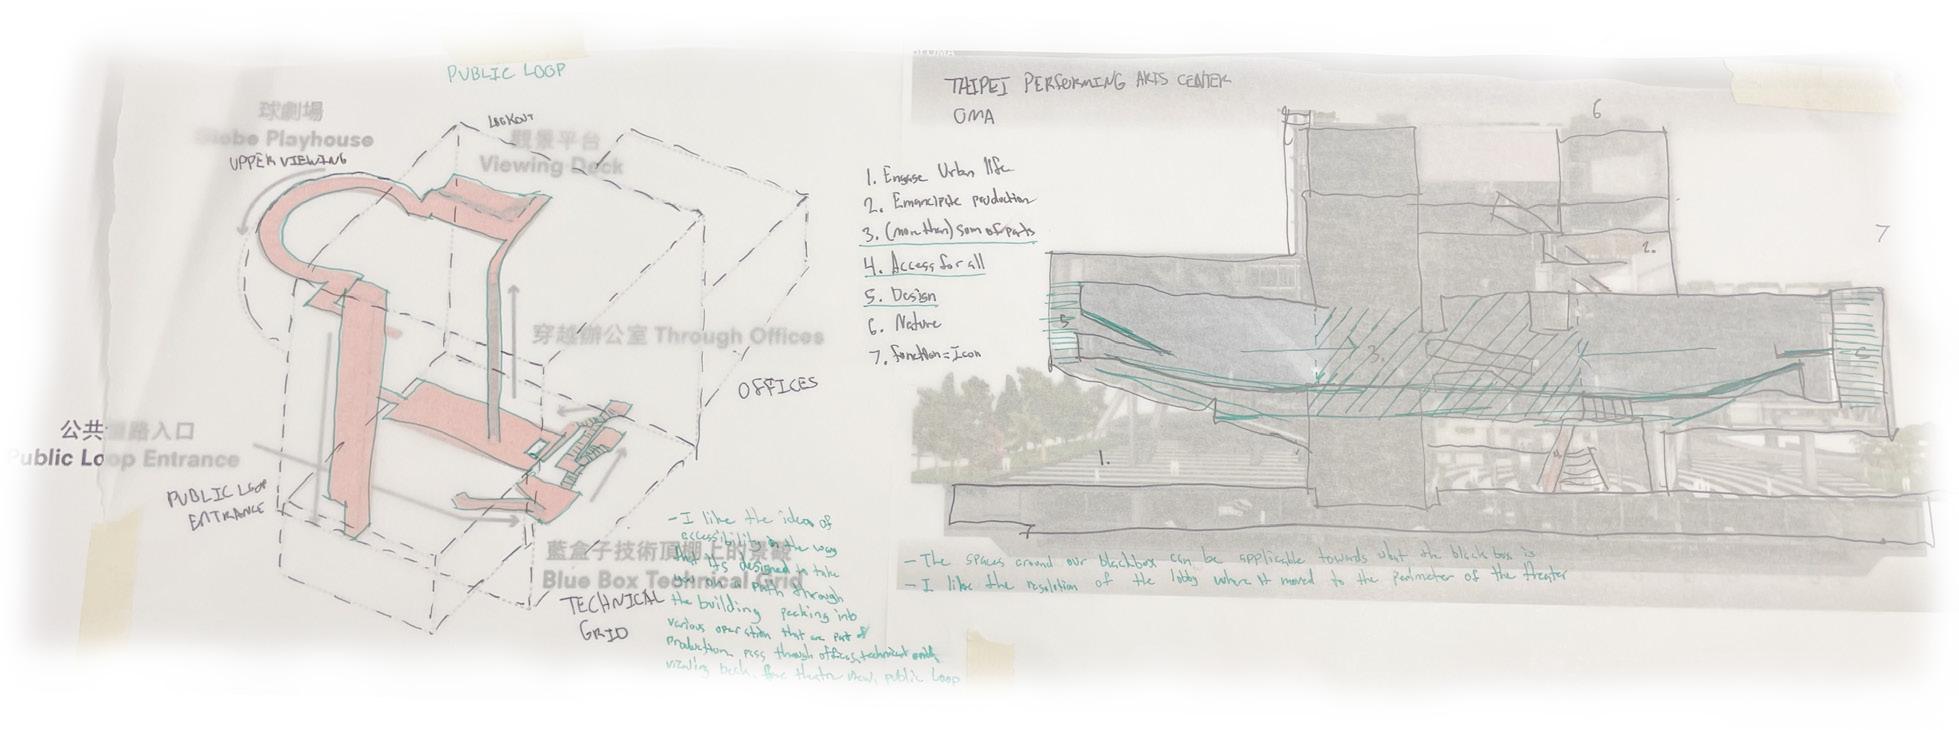 PUBLIC LOOP
球劇場
Globe Playhouse
UPPER VIEWING
LOOKOUT
觀景平台
Viewing Deck
穿越辦公室 Through Offices
OFFICES
公共 路入口
Public Loop Entrance
PUBLIC LOOP
ENTRANCE
藍盒子技術頂棚上的景觀
Blue Box Technical Grid
TECHNICAL
GRID
- I like the ideas of
accessibility the way
that its designed to take
on a path through
the building peeking into
various operation that are part of
production, pass through offices, technical
viewing theatre view, public loop
TAIPEI PERFORMING ARTS CENTER
OMA
1. Engage Urban life
2. Emancipate production
3. (more than) sum of parts
4. Access for all
5. Design
6. Nature
7. function = Icon
6
7
2.
5
3.
6
1.
- The spaces around our blackbox can be applicable towards what the black box is
- I like the resolution of the lobby where it moved to the perimeter of the theater